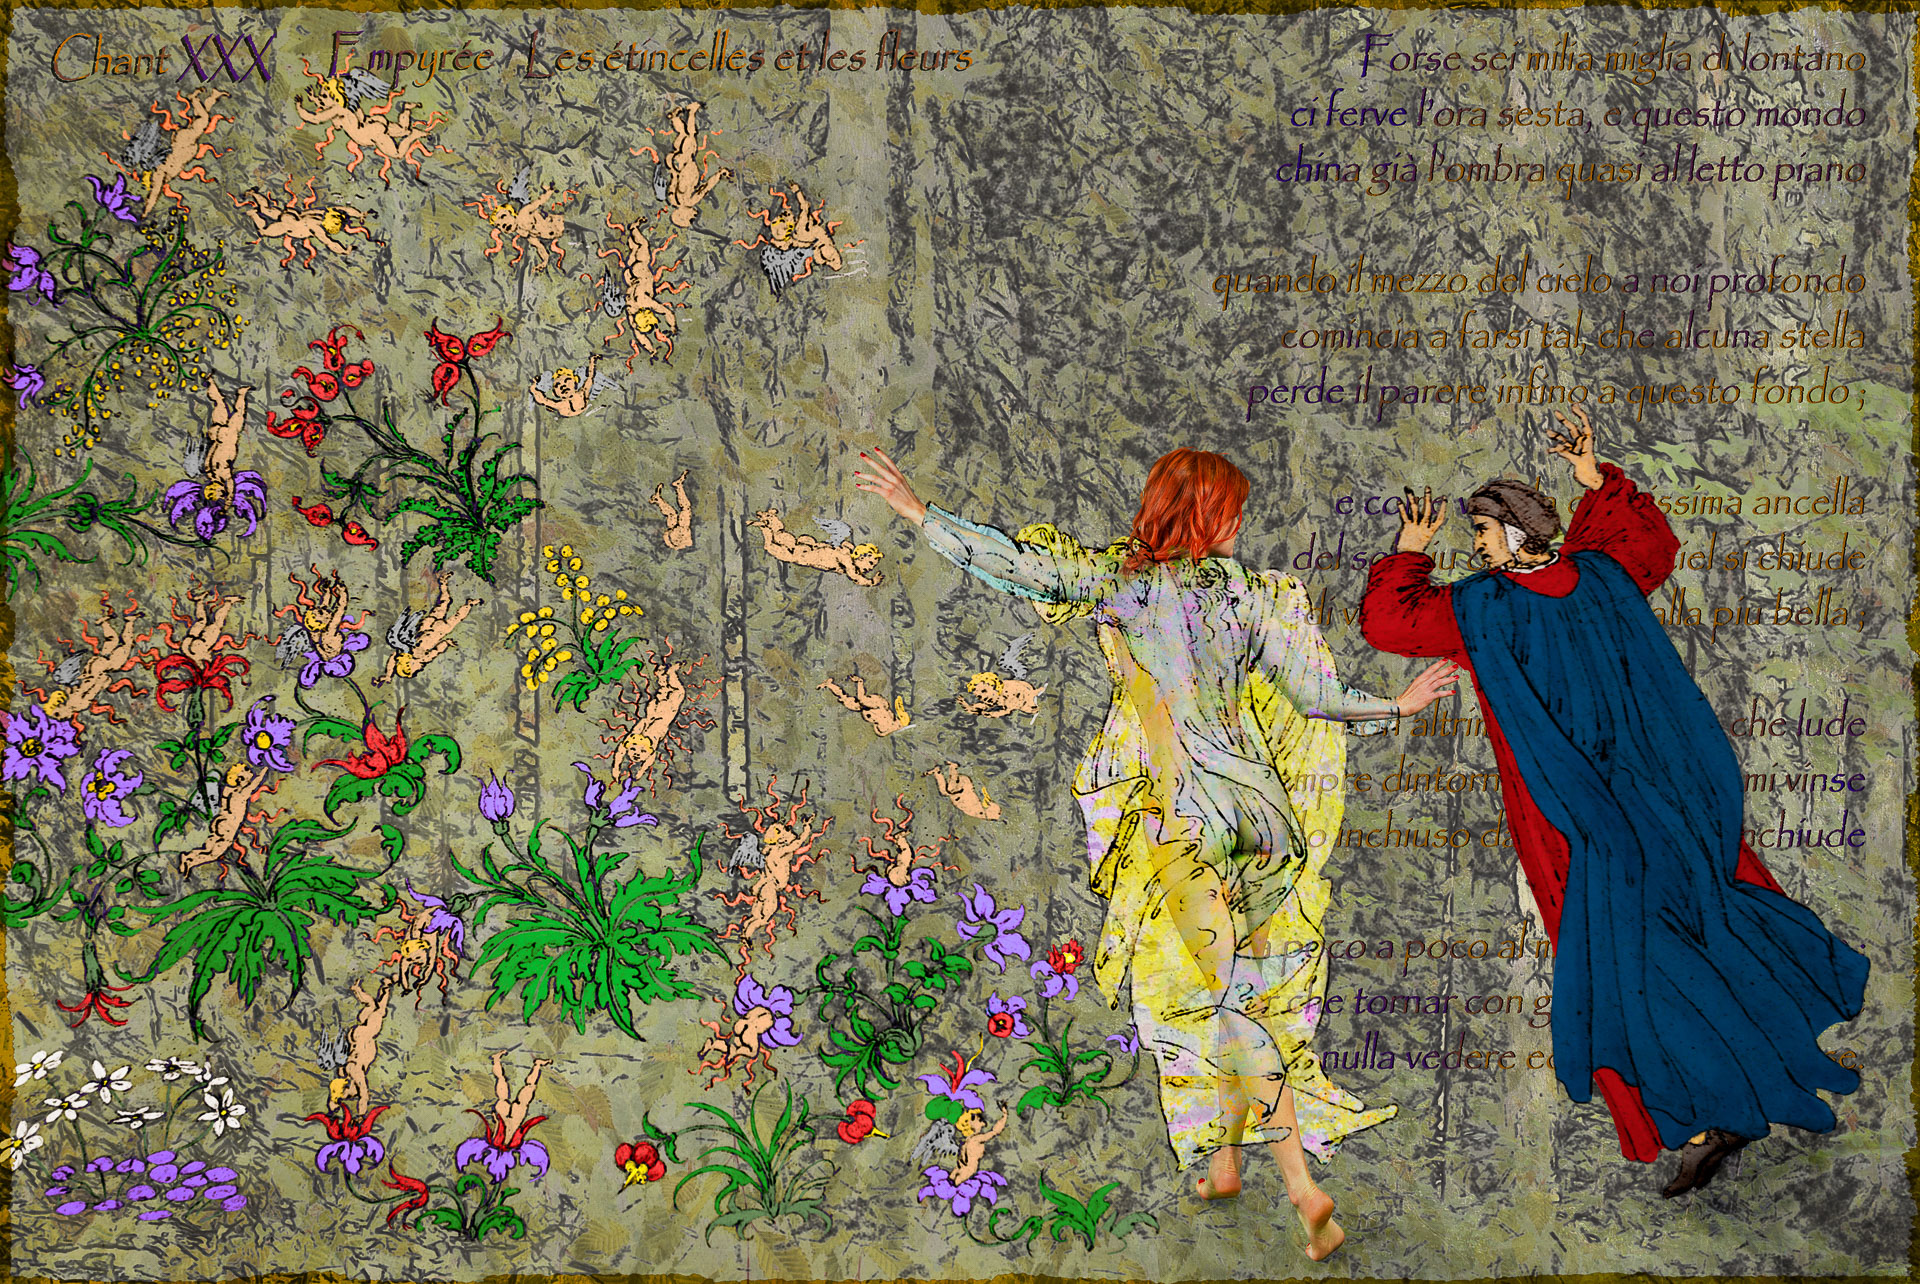 Chant XXX Empyrée Les étincelles et les fleurs
Forse sei milia miglia di lontano
ci ferve l'ora sesta, e questo mondo
china già l'ombra quasi al letto piano
quando il mezzo del cielo a noi profondo
comincia a farsi tal, che alcuna stella
perde il parere infino a questo fondo ;
e come ancella
del si chiude
di alla piu bella ;
che lude
dintorn mi vinse
inchiuso
poco a poco al
che tornar con
nulla vedere